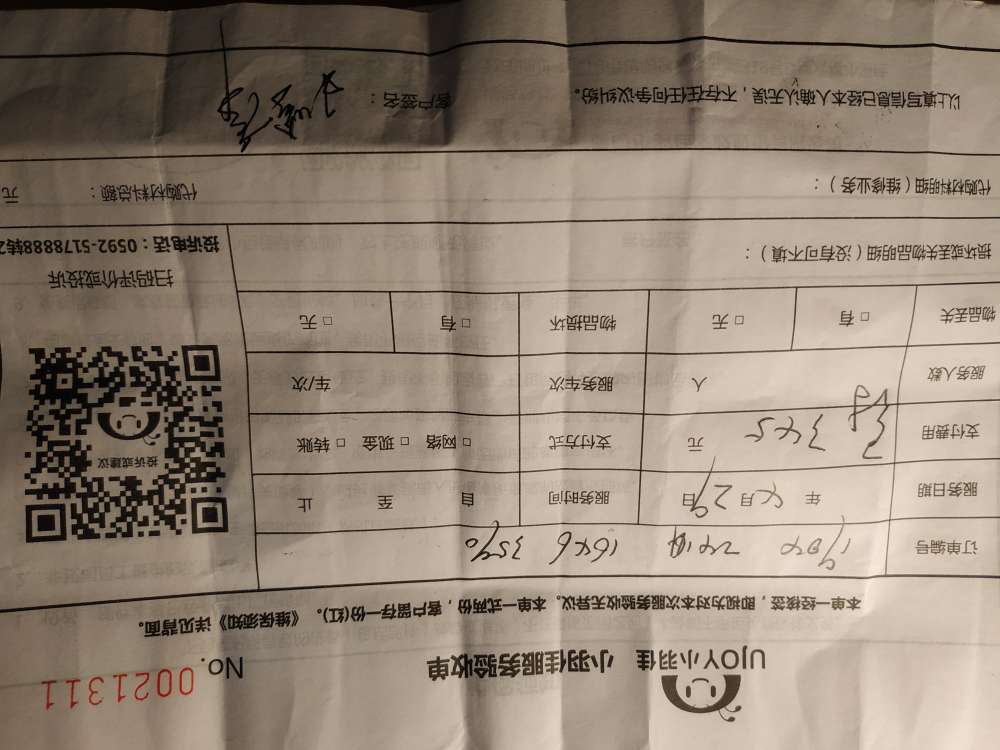 UJOY小羽佳 小羽佳服务验收单 No. 0021311
本单一经核签，即视为对本次服务验收无异议。本单一式两份，客户留存一份(红)。《维保须知》详见背面。
订单编号 1646 3590
服务日期 年 月29日 服务时间 自 至 止
支付费用 345 元 支付方式 □ 网络 □ 现金 □ 转账
服务人数 人 服务车次 车/次
物品丢失 □ 有 □ 无 物品损坏 □ 有 □ 无
损坏或丢失物品明细（没有可不填）：
投诉或建议
扫码评价或投诉
投诉电话：0592-5178888转2
代购材料明细（维修业务）： 代购材料总额： 元
以上填写信息已经本人确认无误，不存在任何争议纠纷。 客户签名：